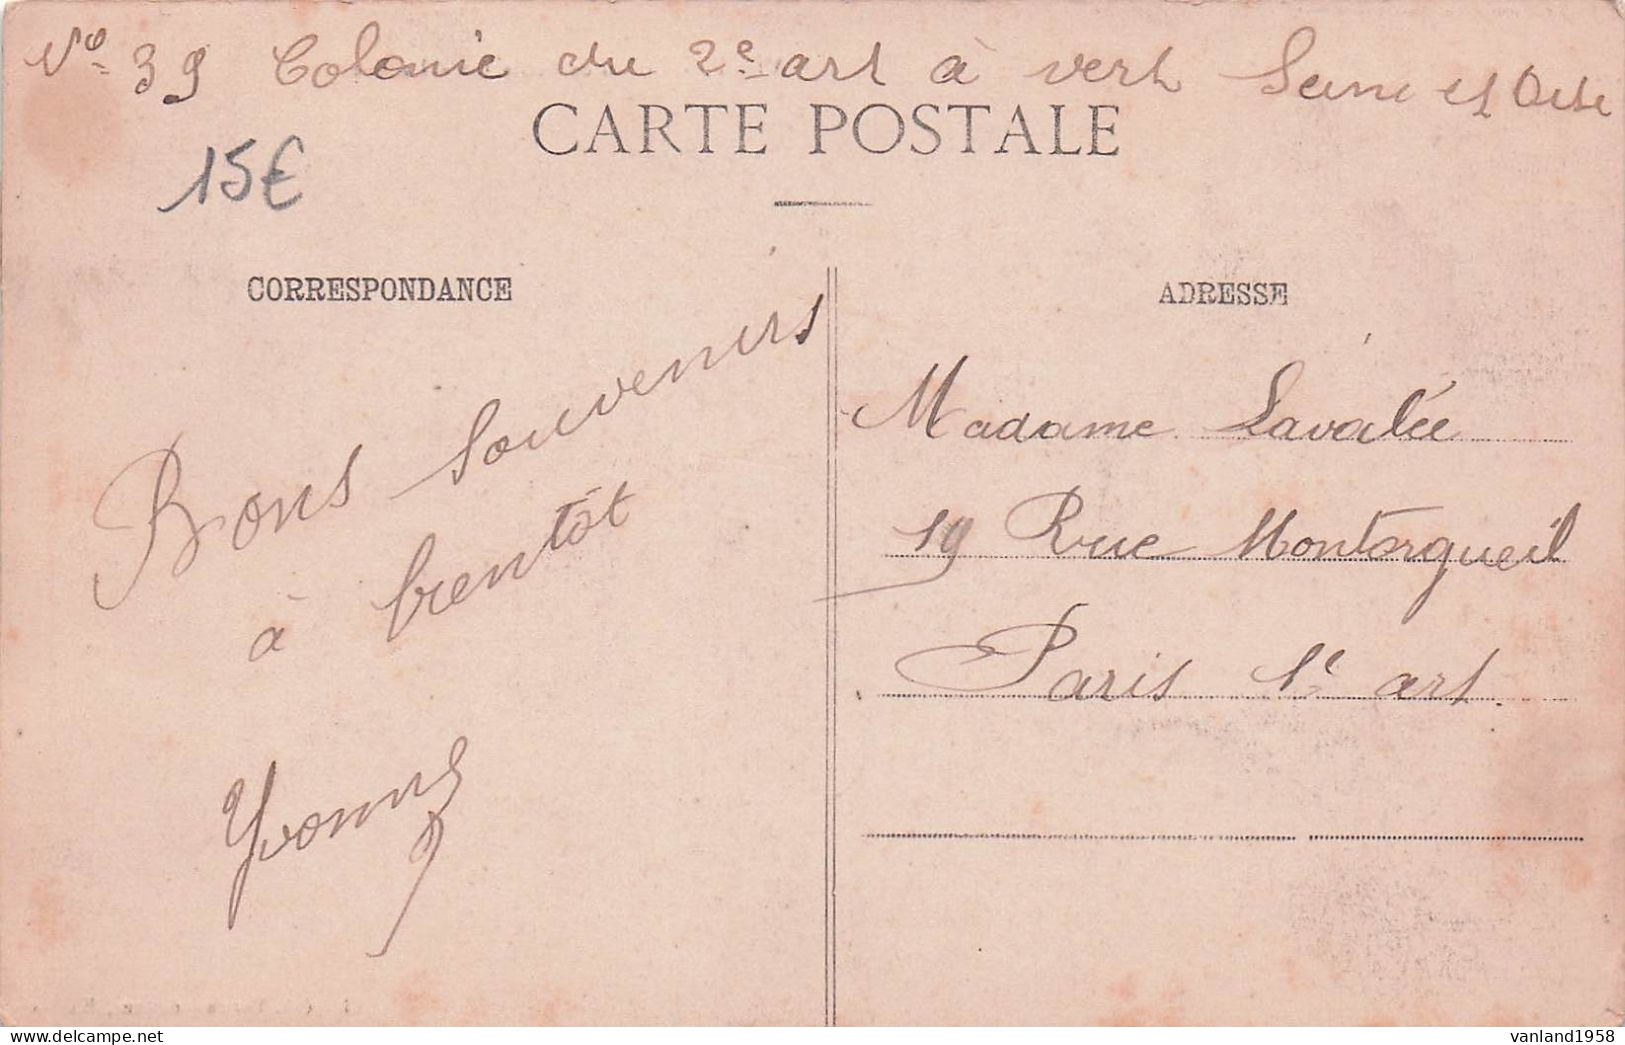 Nº 39 Colonie du 2e art à vert Seine et Oise
CARTE POSTALE
15€
CORRESPONDANCE
ADRESSE
Bons souvenirs
à bientôt
Yvonne
Madame Lavalée
19 Rue Montorgueil
Paris 1e art.
vanland1958